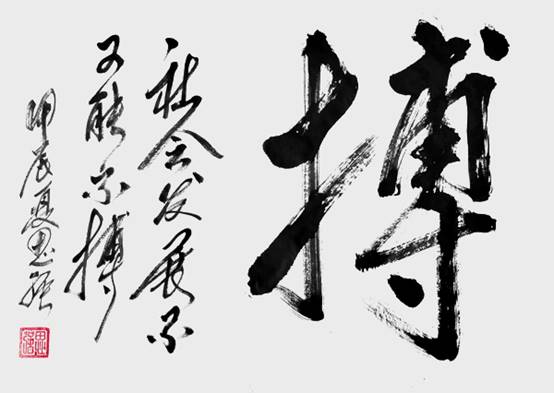 搏
社会发展不
可能不搏
甲辰夏思强